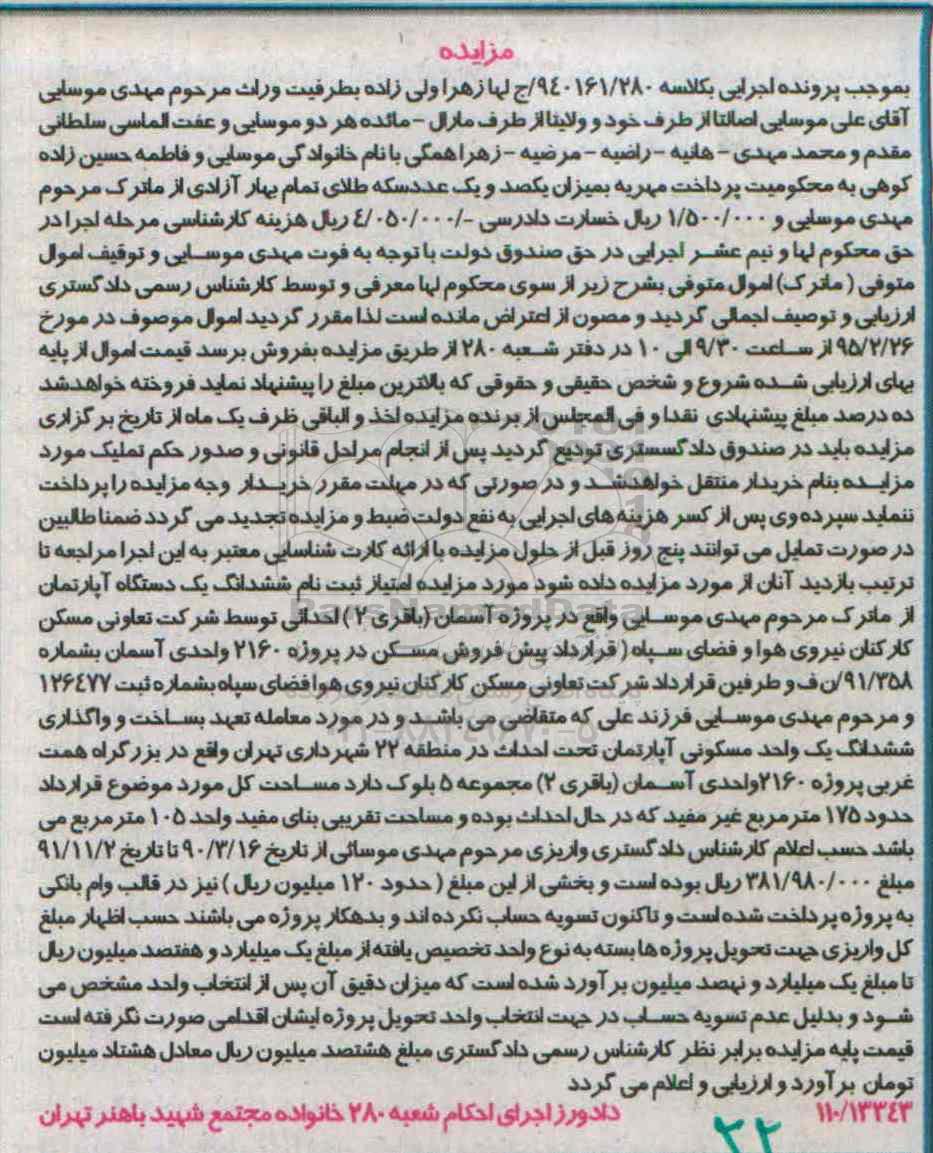 مزایده
بموجب پرونده اجرایی بکلاسه ۹٤۰۱۶۱/۲۸۰/ج لها زهرا ولی زاده بطرفیت وراث مرحوم مهدی موسایی
آقای علی موسایی اصالتا از طرف خود و ولایتا از طرف مارال - مائده هر دو موسایی و عفت الماسی سلطانی
مقدم و محمد مهدی - هانیه - راضیه - مرضیه - زهرا همگی با نام خانوادگی موسایی و فاطمه حسین زاده
کوهی به محکومیت پرداخت مهریه بمیزان یکصد و یک عددسکه طلای تمام بهار آزادی از ماترک مرحوم
مهدی موسایی و ۱/۵۰۰/۰۰۰ ریال خسارت دادرسی -/٤/۰۵۰/۰۰۰ ریال هزینه کارشناسی مرحله اجرا در
حق محکوم لها و نیم عشر اجرایی در حق صندوق دولت با توجه به فوت مهدی موسایی و توقیف اموال
متوفی ( ماترک) اموال متوفی بشرح زیر از سوی محکوم لها معرفی و توسط کارشناس رسمی دادگستری
ارزیابی و توصیف اجمالی گردید و مصون از اعتراض مانده است لذا مقرر گردید اموال موصوف در مورخ
۹۵/۲/۲۶ از ساعت ۹/۳۰ الی ۱۰ در دفتر شعبه ۲۸۰ از طریق مزایده بفروش برسد قیمت اموال از پایه
بهای ارزیابی شده شروع و شخص حقیقی و حقوقی که بالاترین مبلغ را پیشنهاد نماید فروخته خواهدشد
ده درصد مبلغ پیشنهادی نقدا و فی المجلس از برنده مزایده اخذ و الباقی ظرف یک ماه از تاریخ برگزاری
مزایده باید در صندوق دادگسستری تودیع گردید پس از انجام مراحل قانونی و صدور حکم تملیک مورد
مزایده بنام خریدار منتقل خواهدشد و در صورتی که در مهلت مقرر خریدار وجه مزایده را پرداخت
ننماید سپرده وی پس از کسر هزینه های اجرایی به نفع دولت ضبط و مزایده تجدید می گردد ضمنا طالبین
در صورت تمایل می توانند پنج روز قبل از حلول مزایده با ارائه کارت شناسایی معتبر به این اجرا مراجعه تا
ترتیب بازدید آنان از مورد مزایده داده شود مورد مزایده امتیاز ثبت نام ششدانگ یک دستگاه آپارتمان
از ماترک مرحوم مهدی موسایی واقع در پروژه آسمان (باقری ۲ ) احداثی توسط شرکت تعاونی مسکن
کارکنان نیروی هوا و فضای سپاه ( قرارداد پیش فروش مسکن در پروژه ۲۱۶۰ واحدی آسمان بشماره
۹۱/۳۵۸/ن ف و طرفین قرارداد شرکت تعاونی مسکن کارکنان نیروی هوا فضای سپاه بشماره ثبت ۱۲۶٤۷۷
و مرحوم مهدی موسایی فرزند علی که متقاضی می باشد و در مورد معامله تعهد بساخت و واگذاری
ششدانگ یک واحد مسکونی آپارتمان تحت احداث در منطقه ۲۲ شهرداری تهران واقع در بزرگراه همت
غربی پروژه ۲۱۶۰واحدی آسمان (باقری ۲) مجموعه ۵ بلوک دارد مساحت کل مورد موضوع قرارداد
حدود ۱۷۵ مترمربع غیر مفید که در حال احداث بوده و مساحت تقریبی بنای مفید واحد ۱۰۵ مترمربع می
باشد حسب اعلام کارشناس دادگستری واریزی مرحوم مهدی موسائی از تاریخ ۹۰/۳/۱۶ تا تاریخ ۹۱/۱۱/۲
مبلغ ۳۸۱/۹۸۰/۰۰۰ ریال بوده است و بخشی از این مبلغ ( حدود ۱۲۰ میلیون ریال ) نیز در قالب وام بانکی
به پروژه پرداخت شده است و تاکنون تسویه حساب نکرده اند و بدهکار پروژه می باشند حسب اظهار مبلغ
کل واریزی جهت تحویل پروژه ها بسته به نوع واحد تخصیص یافته از مبلغ یک میلیارد و هفتصد میلیون ریال
تا مبلغ یک میلیارد و نهصد میلیون برآورد شده است که میزان دقیق آن پس از انتخاب واحد مشخص می
شود و بدلیل عدم تسویه حساب در جهت انتخاب واحد تحویل پروژه ایشان اقدامی صورت نگرفته است
قیمت پایه مزایده برابر نظر کارشناس رسمی دادگستری مبلغ هشتصد میلیون ریال معادل هشتاد میلیون
تومان برآورد و ارزیابی و اعلام می گردد
۱۱۰/۱۳۳٤۳ دادورز اجرای احکام شعبه ۲۸۰ خانواده مجتمع شهید باهنر تهران
۲۲
ParsNamadData